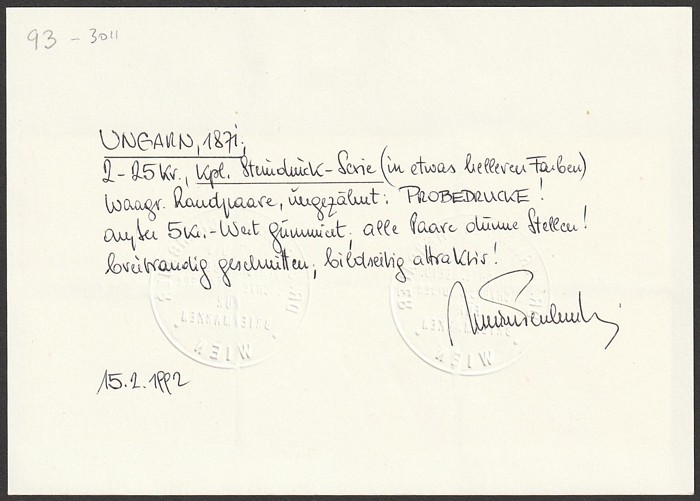 93 - 3011
UNGARN, 1871;
2-25 Kr., kpl. Steindruck-Serie (in etwas helleren Farben)
waagr. Randpaare, ungezähnt: PROBEDRUCKE!
außer 5 Kr.-Wert gummiert, alle Paare dünne Stellen!
breitrandig geschnitten, bildseitig attraktiv!
WIEN
WIEN
15.2.1992